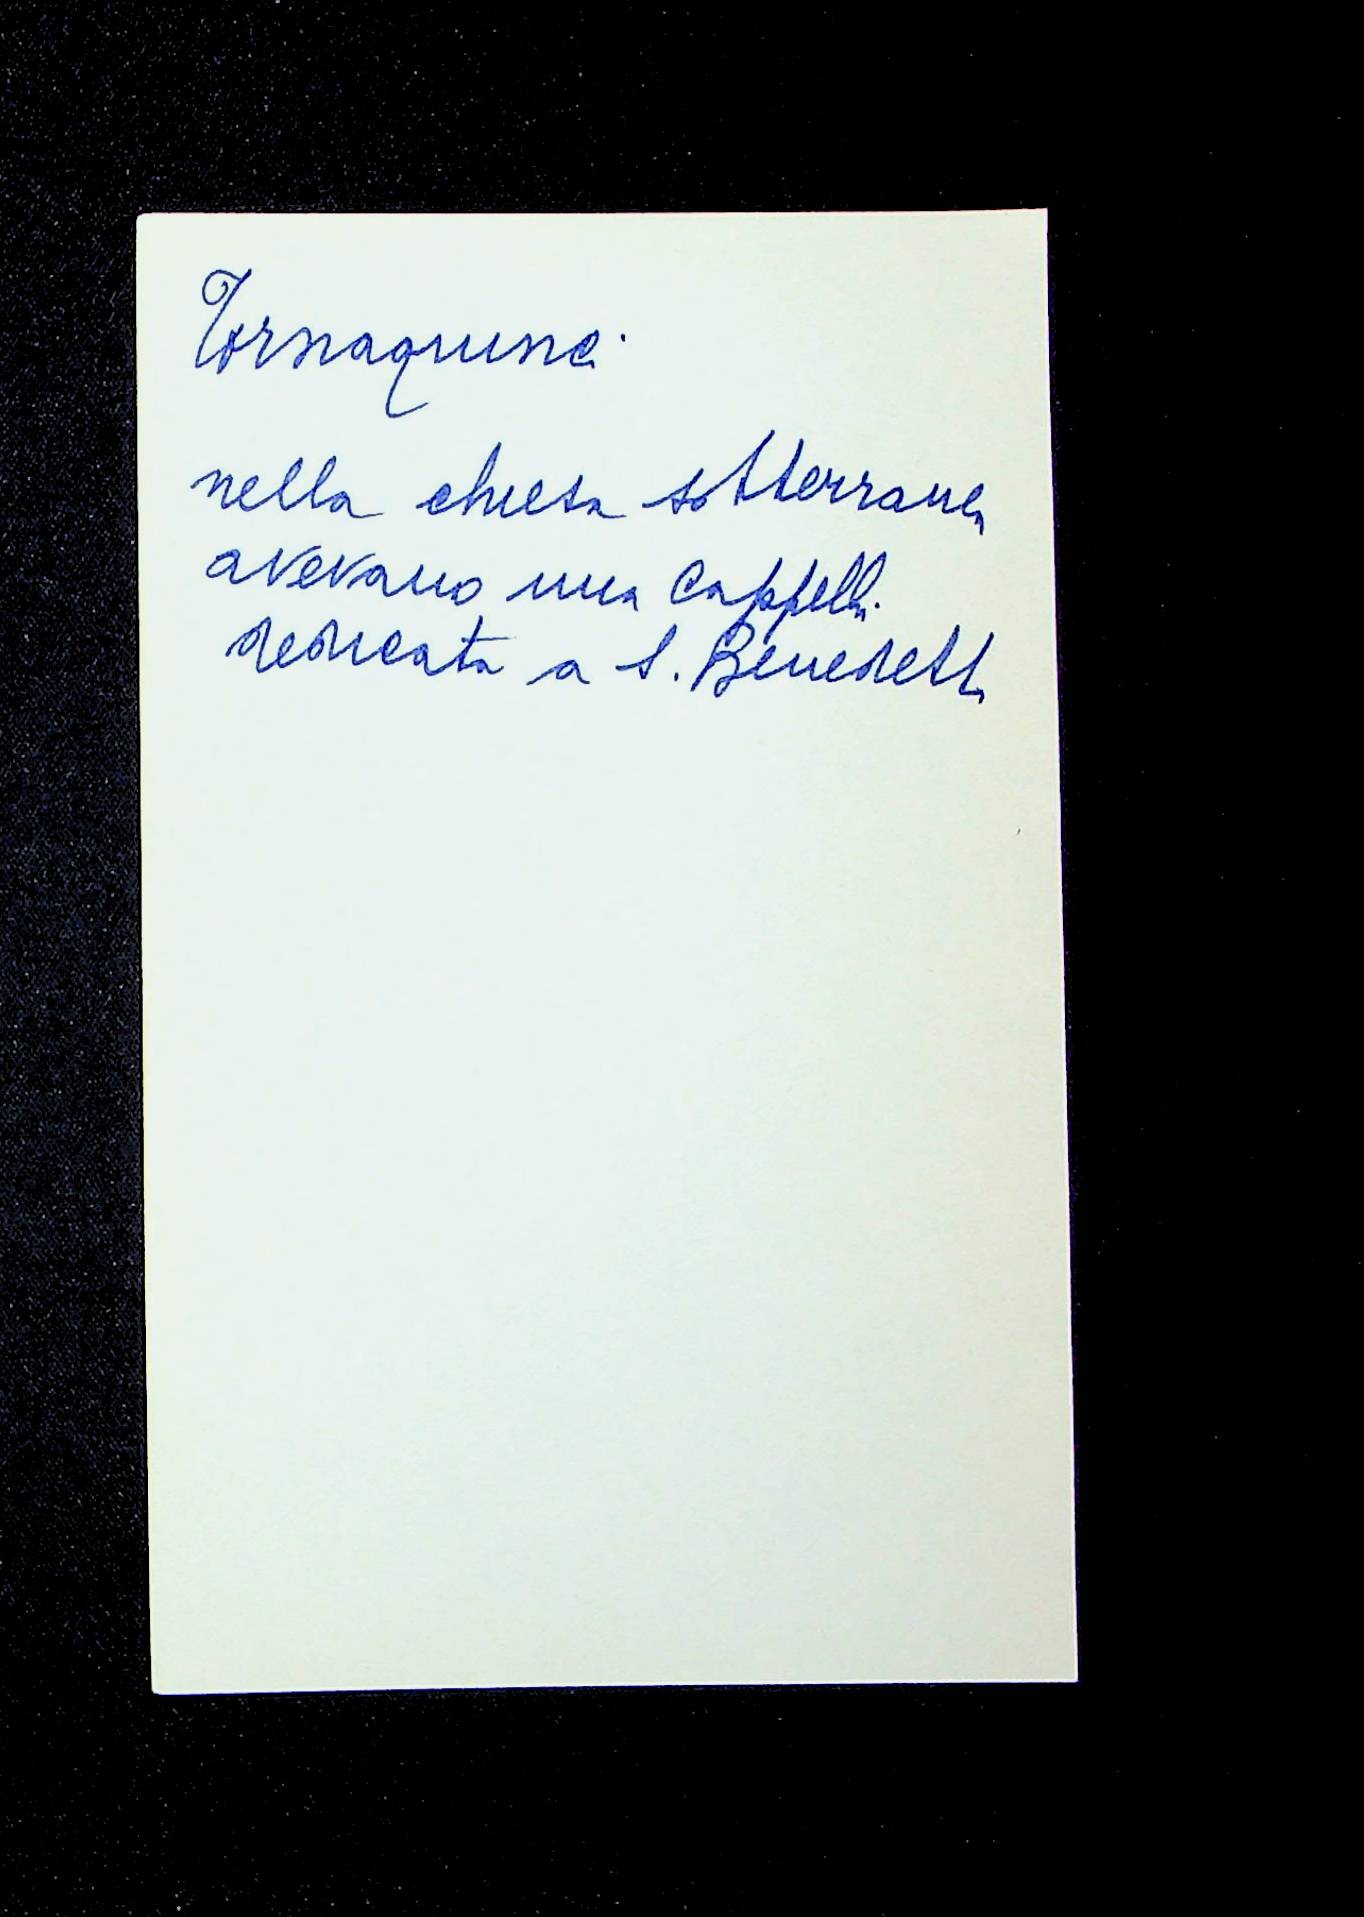 Tornaquinci
nella chiesa sotterranea
avevano una cappella
dedicata a S. Benedetto